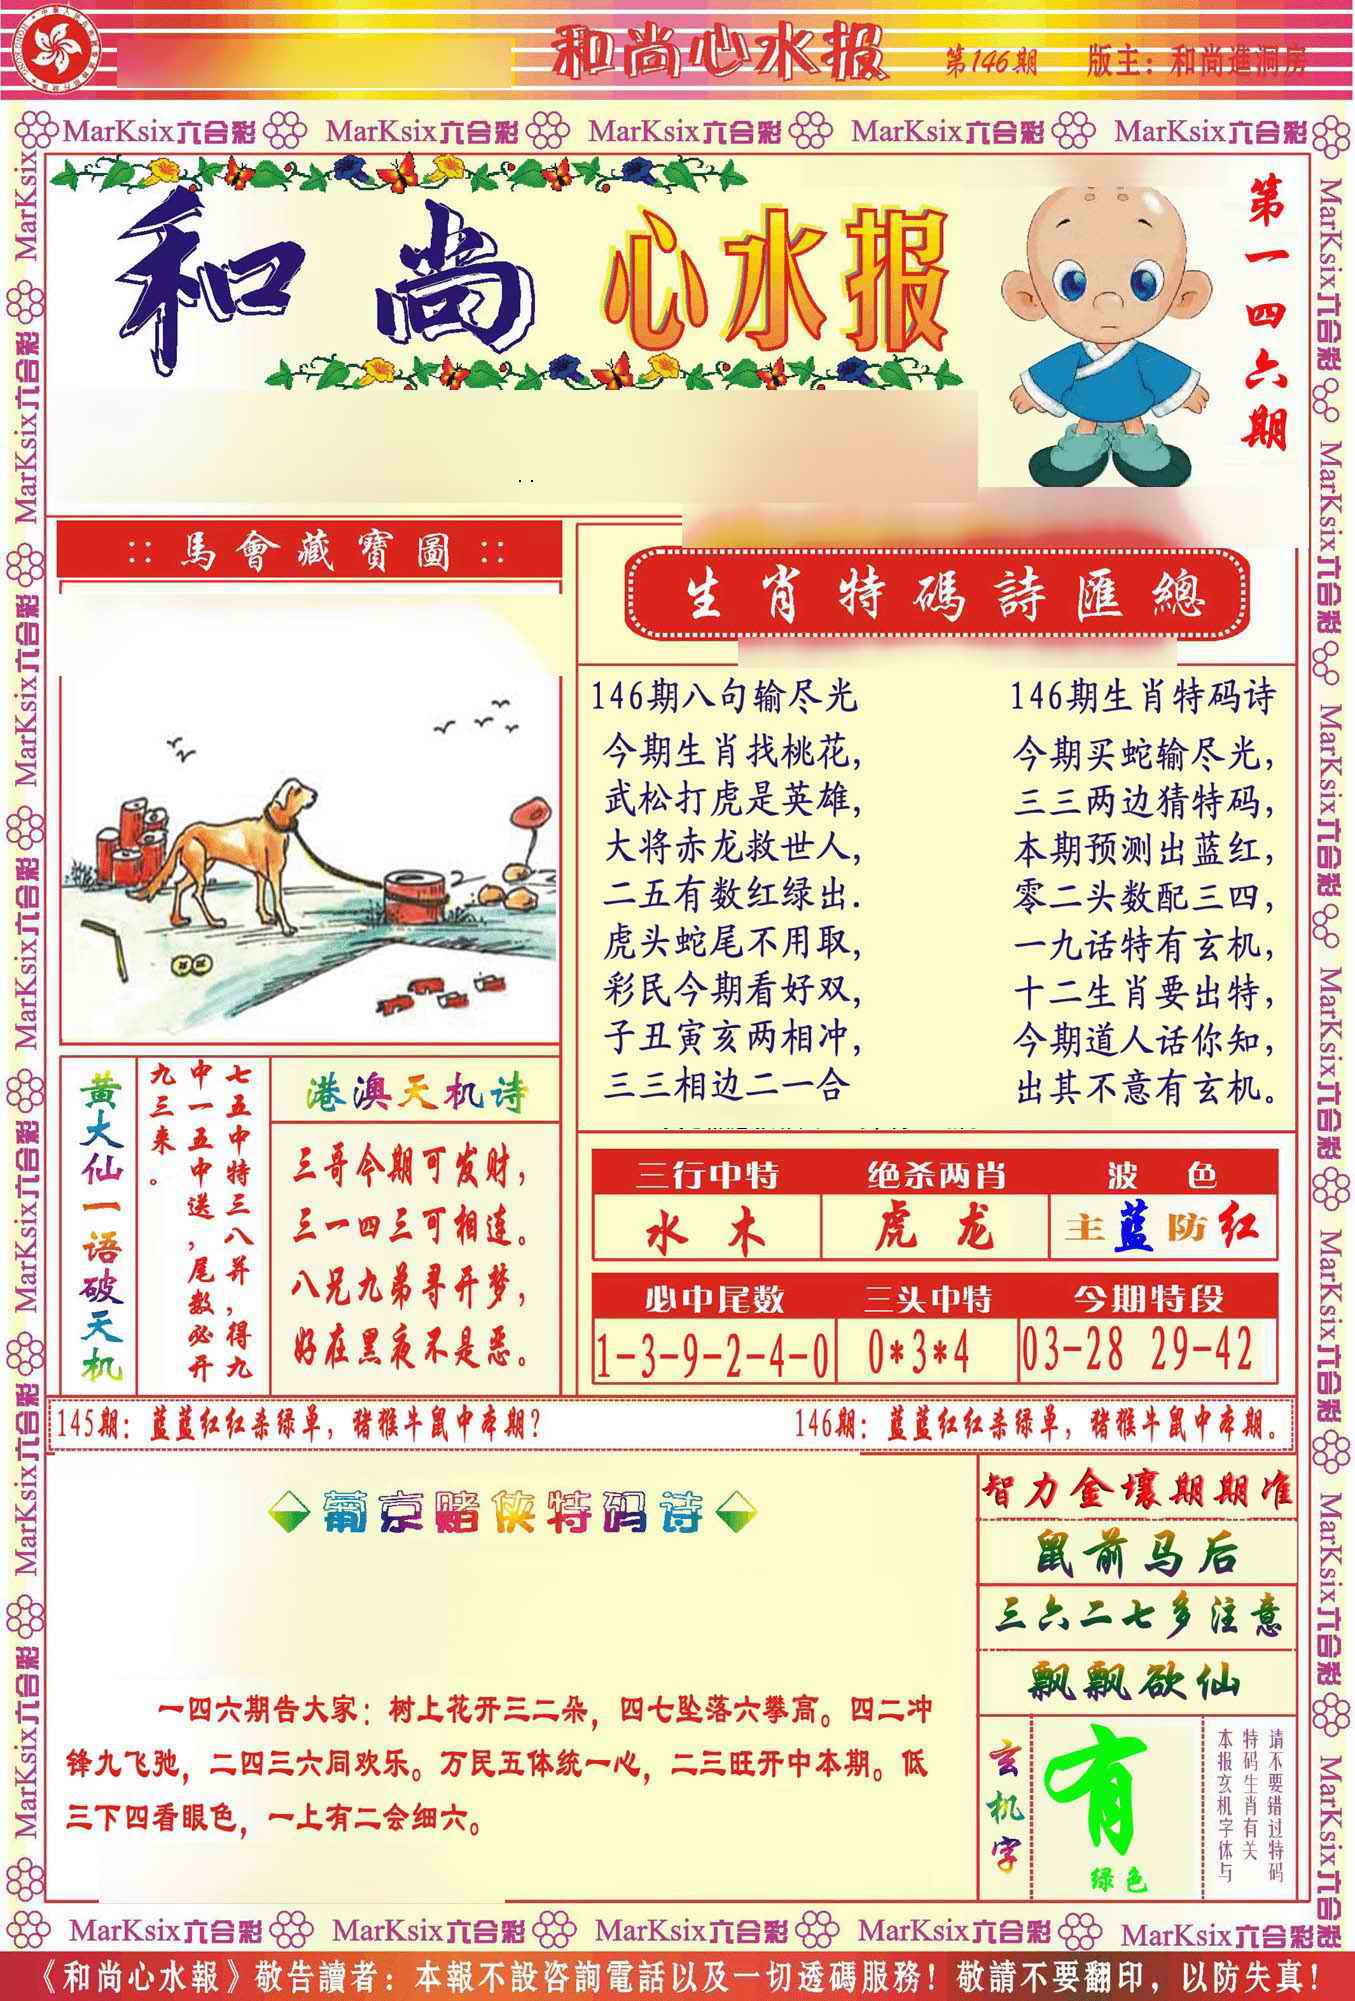 和尚心水报 第146期 版主：和尚進洞房
MarKsix六合彩 MarKsix六合彩 MarKsix六合彩 MarKsix六合彩 MarKsix六合彩
和尚心水报
第一四六期
:: 馬會藏寶圖 ::
生肖特碼詩匯總
146期八句输尽光
今期生肖找桃花，
武松打虎是英雄，
大将赤龙救世人，
二五有数红绿出.
虎头蛇尾不用取，
彩民今期看好双，
子丑寅亥两相冲，
三三相边二一合
146期生肖特码诗
今期买蛇输尽光，
三三两边猜特码，
本期预测出蓝红，
零二头数配三四，
一九话特有玄机，
十二生肖要出特，
今期道人话你知，
出其不意有玄机。
黄大仙一语破天机
七五中特三八并，得九
中一五中送，尾数必开
九三来。
港澳天机诗
三哥今期可发财，
三一四三可相连。
八兄九弟寻开梦，
好在黑夜不是恶。
三行中特 绝杀两肖 波色
水木 虎龙 主蓝防红
必中尾数 三头中特 今期特段
1-3-9-2-4-0 0*3*4 03-28 29-42
145期：蓝蓝红红杀绿单，猪猴牛鼠中本期？ 146期：蓝蓝红红杀绿单，猪猴牛鼠中本期。
葡京赌侠特码诗
一四六期告大家：树上花开三二朵，四七坠落六攀高。四二冲
锋九飞弛，二四三六同欢乐。万民五体统一心，二三旺开中本期。低
三下四看眼色，一上有二会细六。
智力金壤期期准
鼠前马后
三六二七多注意
飘飘欲仙
玄机字
有
绿色
请不要错过特码
特码生肖有关
本报玄机字体与
MarKsix六合彩 MarKsix六合彩 MarKsix六合彩 MarKsix六合彩 MarKsix六合彩
《和尚心水報》敬告讀者：本報不設咨詢電話以及一切透碼服務！敬請不要翻印，以防失真！